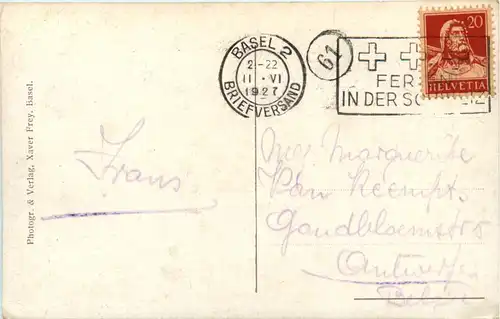 BASEL 2
2-22
11·VI
1927
BRIEFVERSAND
61
FER
IN DER SC
20
HELVETIA
Photogr. & Verlag, Xaver Frey, Basel.
Frans
Marguerite
Van
Antwerpen